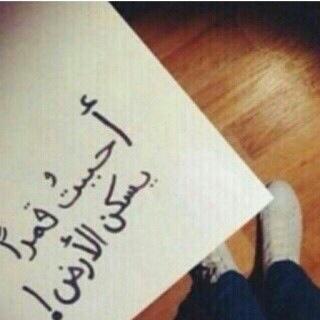 أحببتُ قمراً
يسكن الأرض !